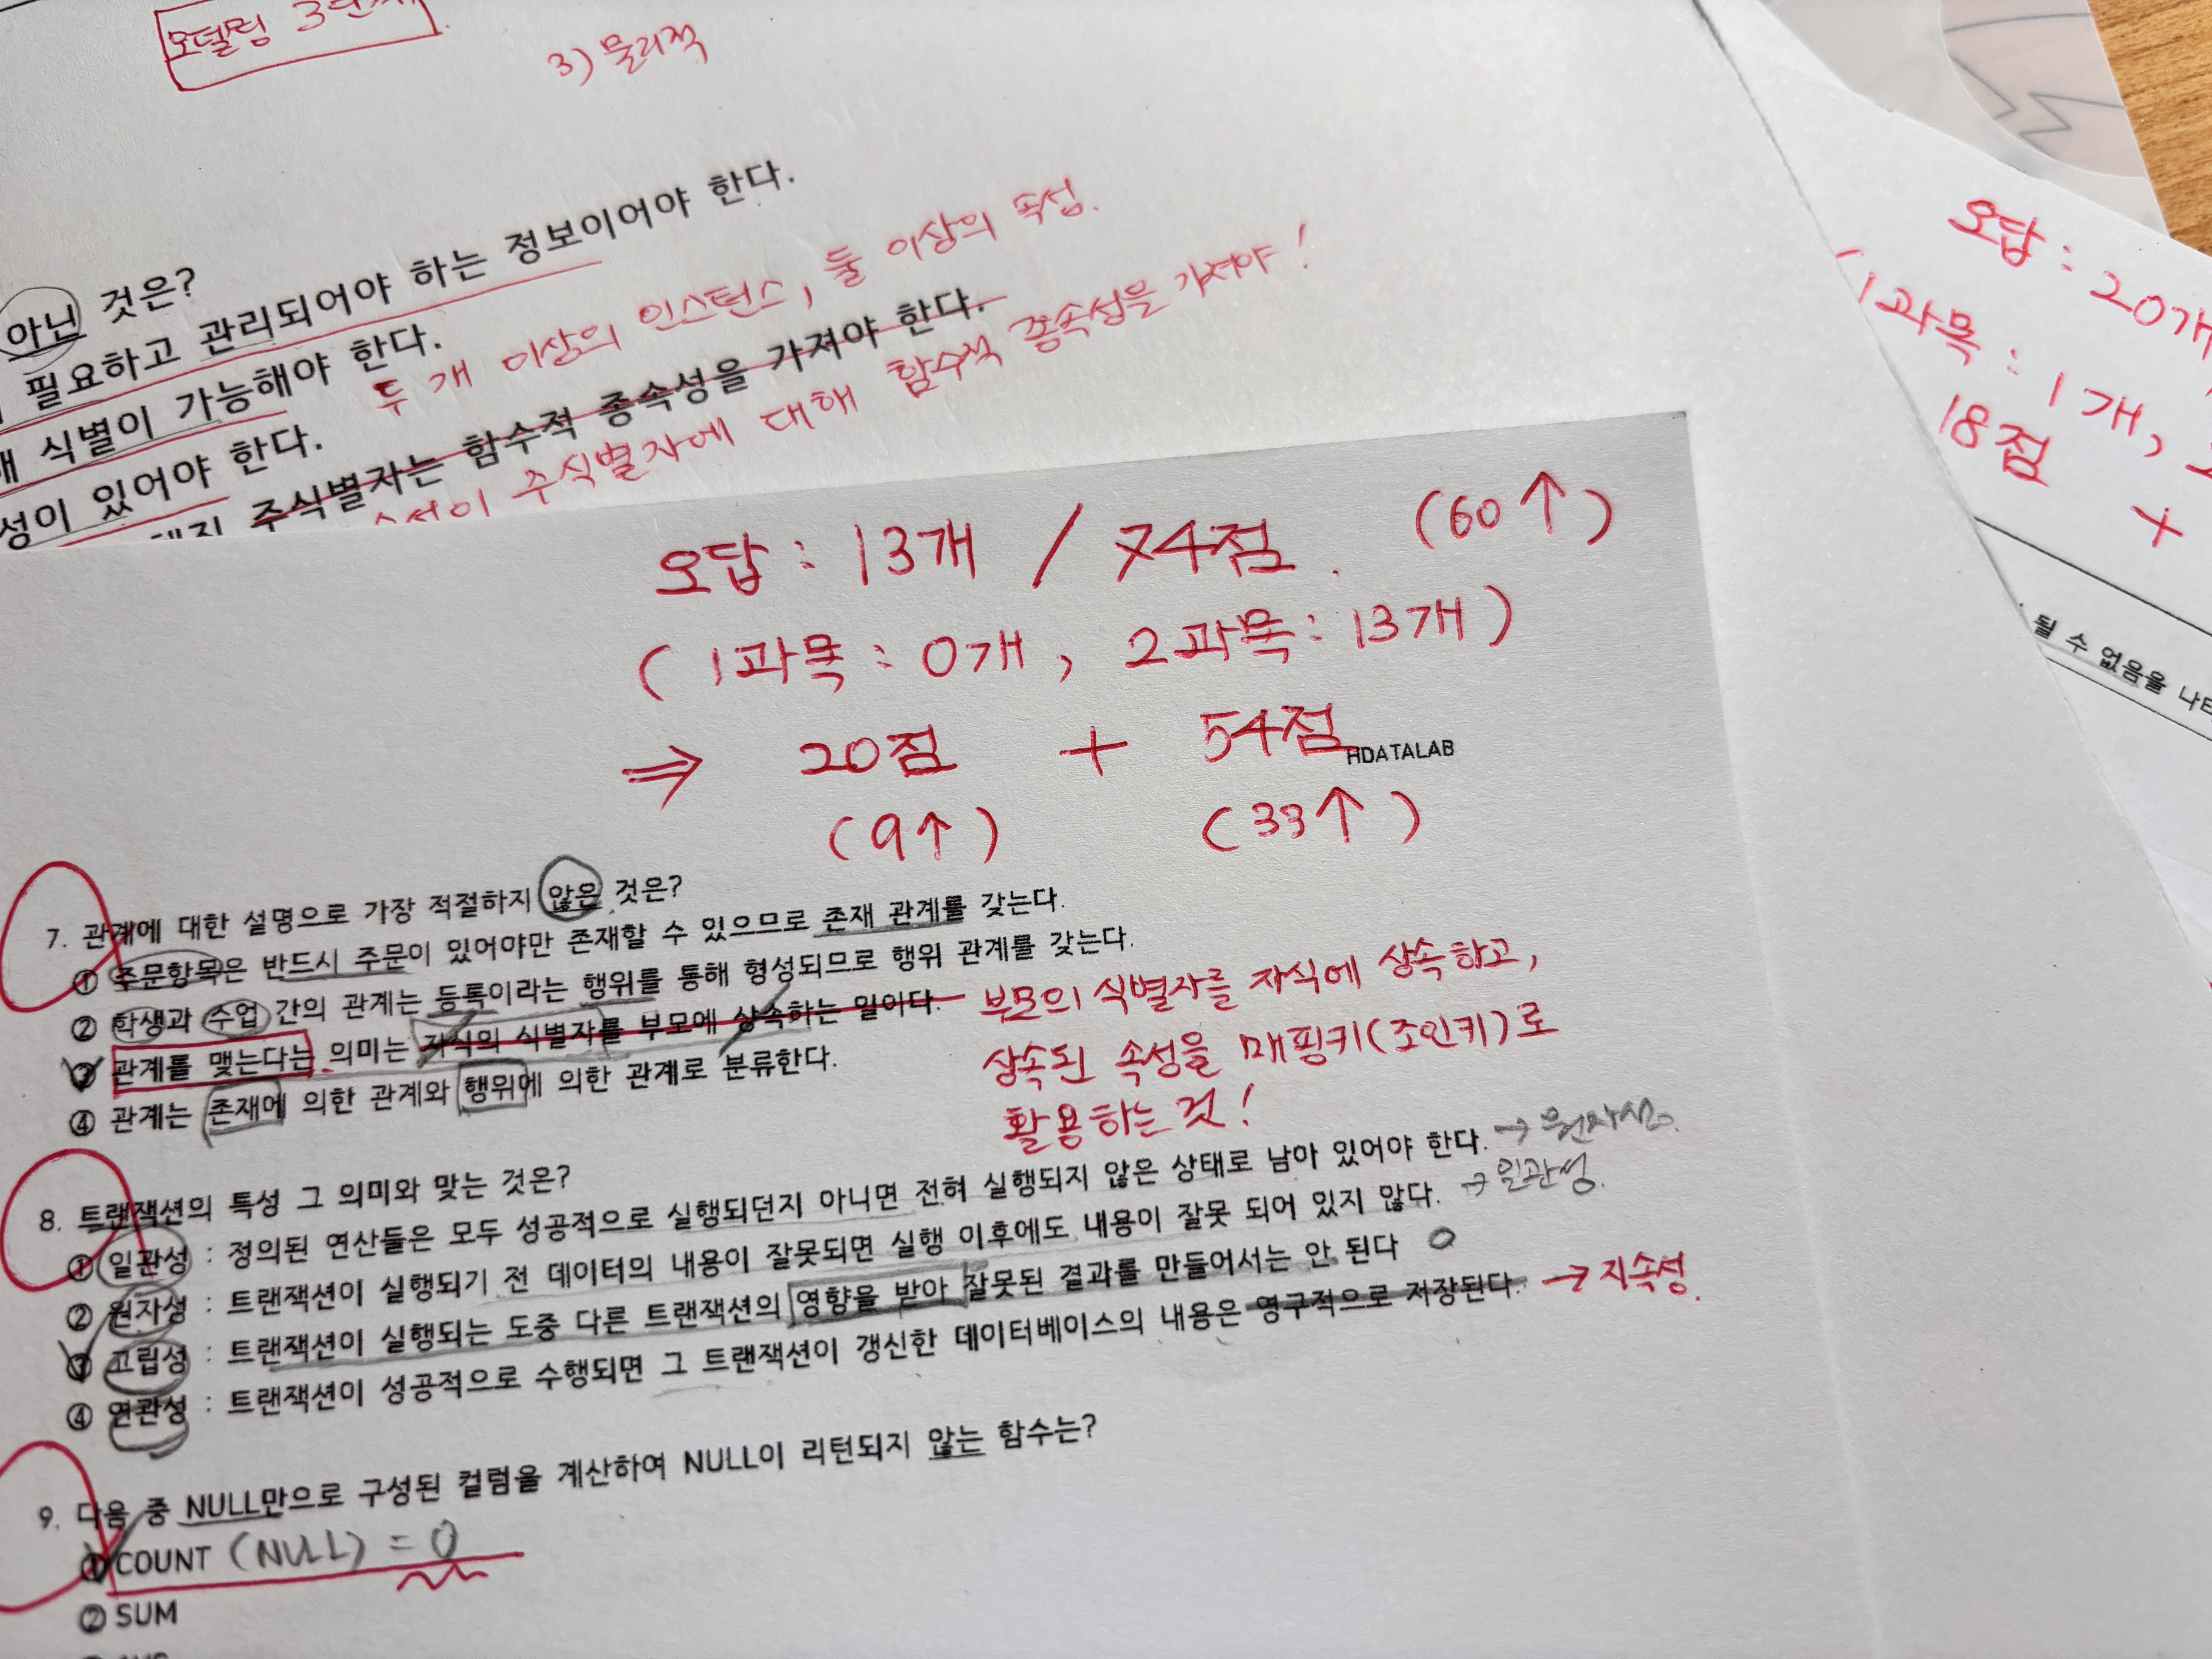 모델링
3) 물리적
아닌 것은?
필요하고 관리되어야 하는 정보이어야 한다.
식별이 가능해야 한다.
두 개 이상의 인스턴스, 둘 이상의 속성.
성이 있어야 한다.
주식별자는 함수적 종속성을 가져야 한다.
주식별자에 대해 함수적 종속성을 가져야!
오답 : 20개
(1과목 : 1개,
18점 +
될 수 없음을
오답 : 13개 / 74점. (60↑)
(1과목 : 0개, 2과목 : 13개)
⇒ 20점 + 54점
HDATALAB
(9↑) (33↑)
7. 관계에 대한 설명으로 가장 적절하지 않은 것은?
① 주문항목은 반드시 주문이 있어야만 존재할 수 있으므로 존재 관계를 갖는다.
② 학생과 수업 간의 관계는 등록이라는 행위를 통해 형성되므로 행위 관계를 갖는다.
③ 관계를 맺는다는 의미는 자식의 식별자를 부모에 상속하는 일이다.
④ 관계는 존재에 의한 관계와 행위에 의한 관계로 분류한다.
부모의 식별자를 자식에 상속하고,
상속된 속성을 매핑키(조인키)로
활용하는 것!
8. 트랜잭션의 특성 그 의미와 맞는 것은?
① 일관성 : 정의된 연산들은 모두 성공적으로 실행되던지 아니면 전혀 실행되지 않은 상태로 남아 있어야 한다. → 원자성.
② 원자성 : 트랜잭션이 실행되기 전 데이터의 내용이 잘못되면 실행 이후에도 내용이 잘못 되어 있지 않다. → 일관성.
③ 고립성 : 트랜잭션이 실행되는 도중 다른 트랜잭션의 영향을 받아 잘못된 결과를 만들어서는 안 된다 O
④ 연관성 : 트랜잭션이 성공적으로 수행되면 그 트랜잭션이 갱신한 데이터베이스의 내용은 영구적으로 저장된다. → 지속성.
9. 다음 중 NULL만으로 구성된 컬럼을 계산하여 NULL이 리턴되지 않는 함수는?
① COUNT (NULL) = 0
② SUM